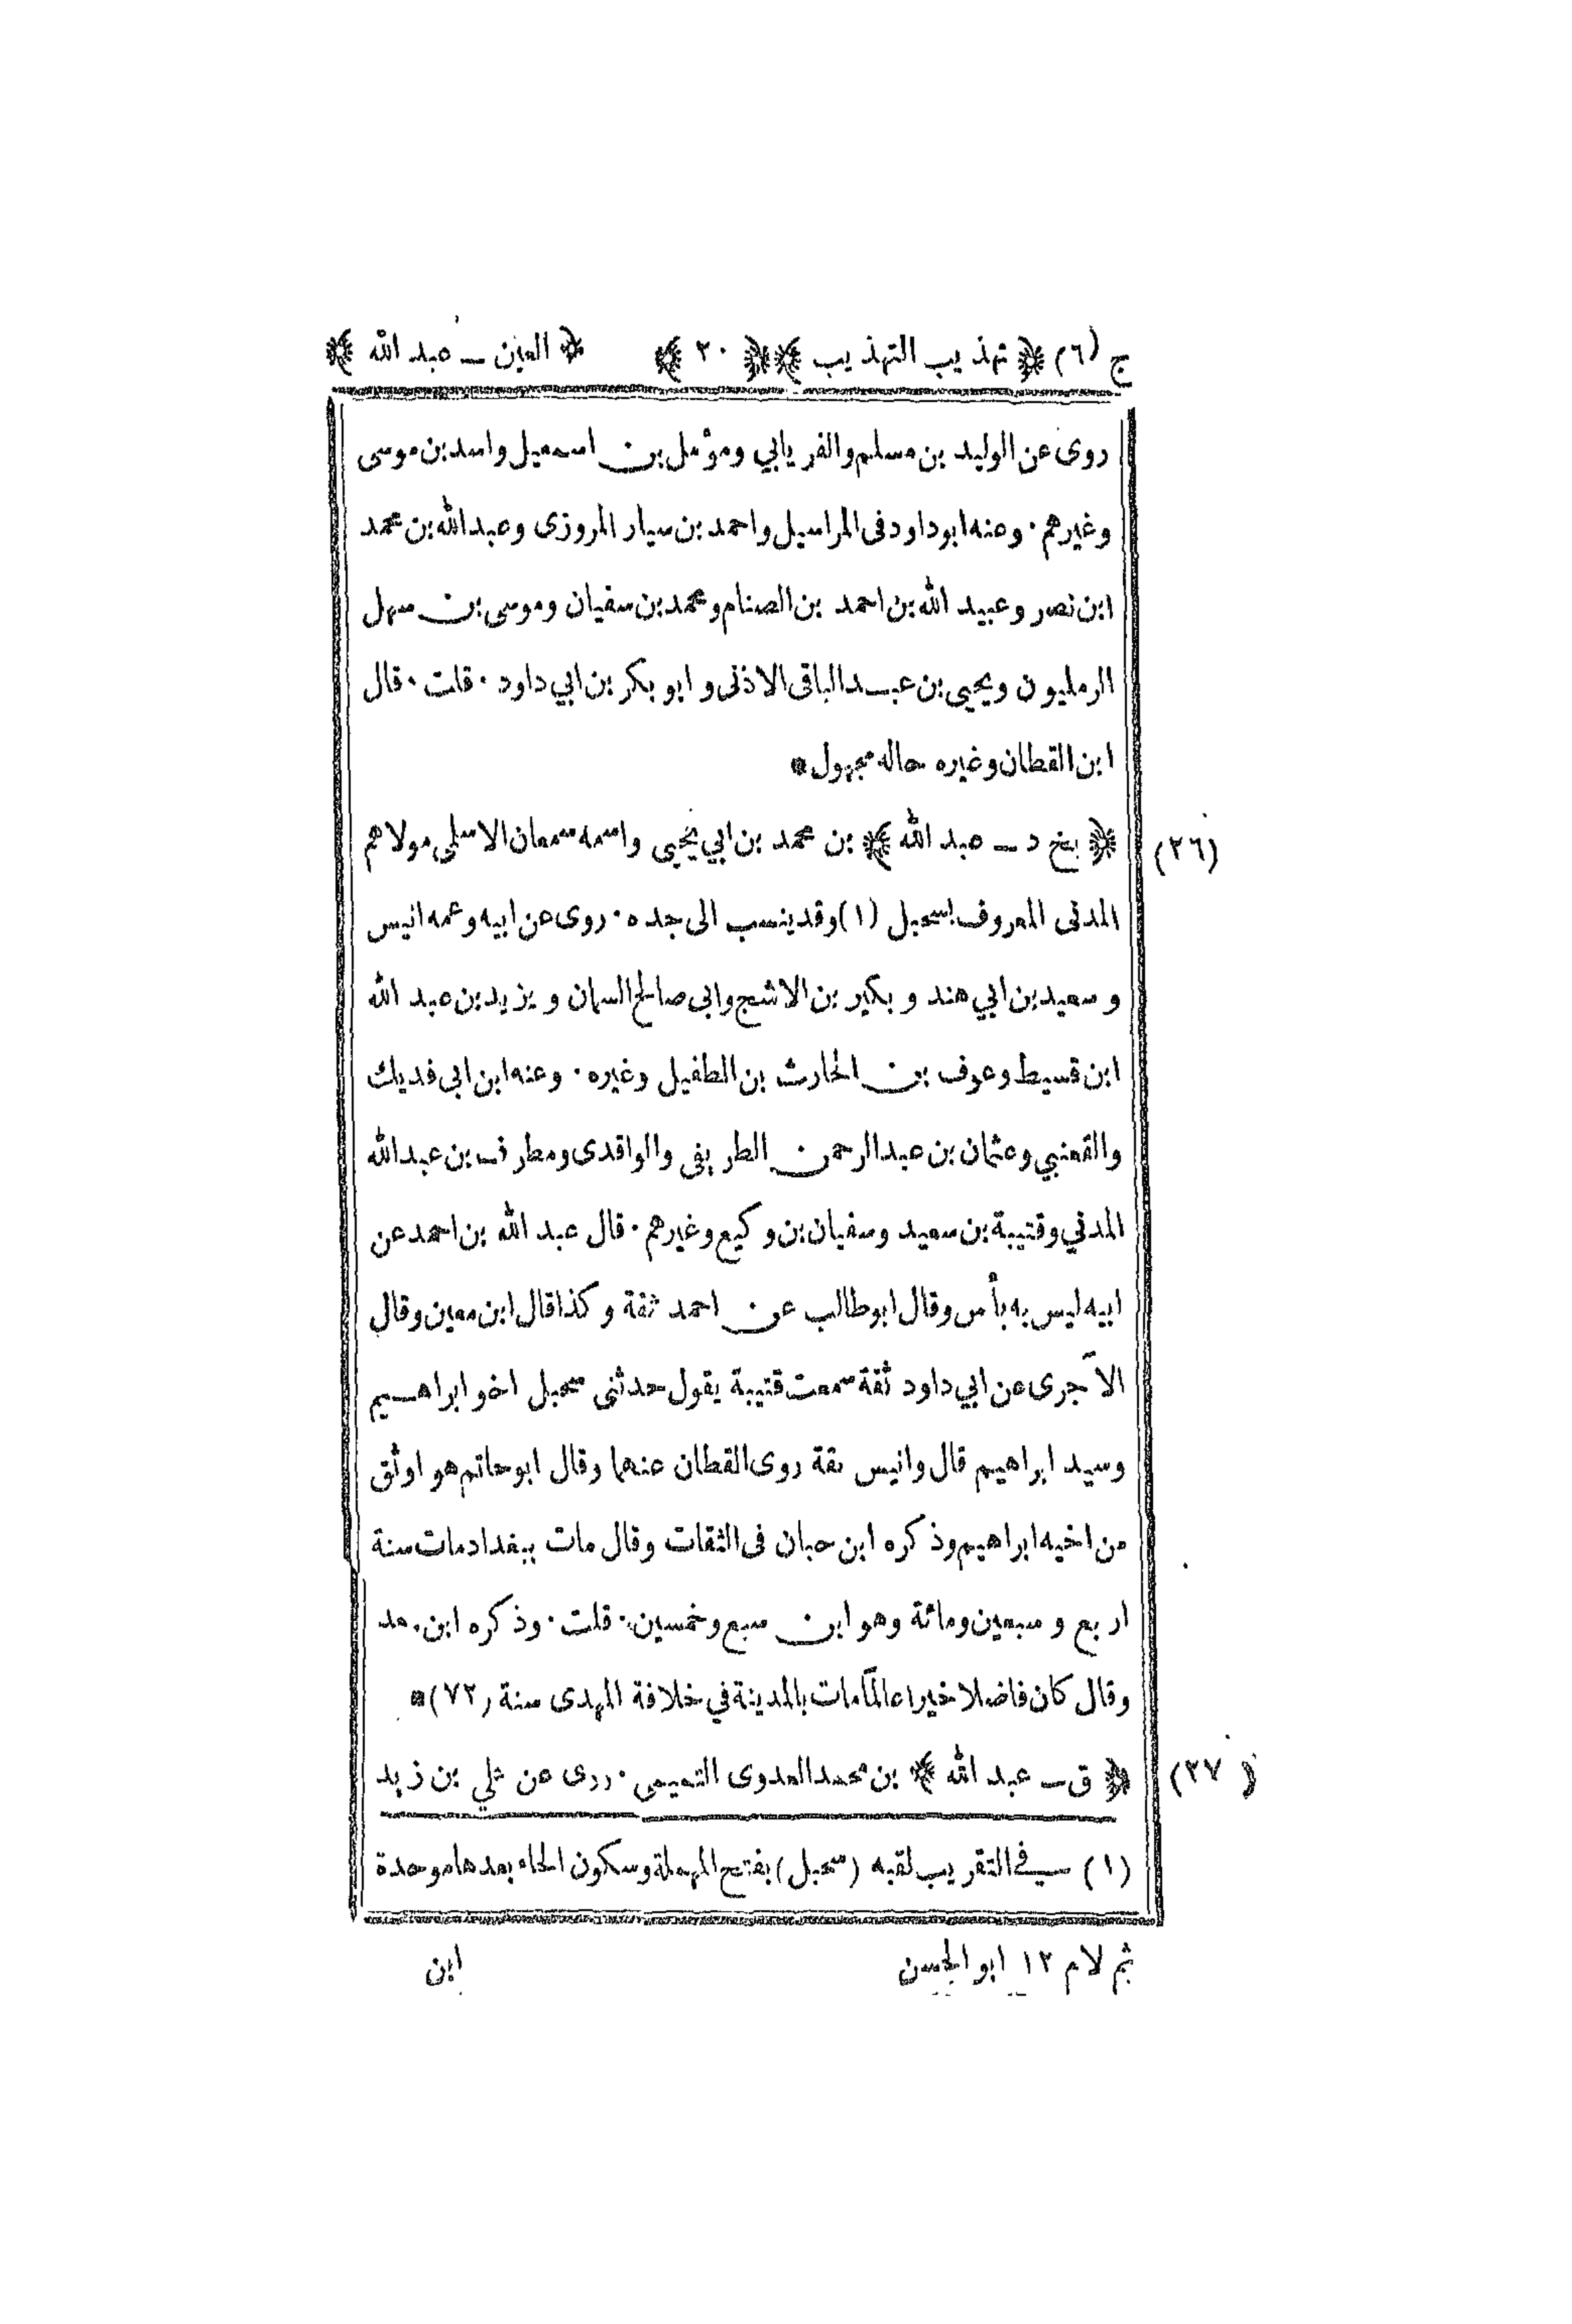 ج (٦) ﴿ تهذيب التهذيب ﴾ ﴿ ٢٠ ﴾ ﴿ العين ـ عبد الله ﴾
روى عن الوليد بن مسلم والفريابي ومؤمل بن اسمعيل واسد بن موسى
وغيرهم · وعنه ابو داود فى المراسيل واحمد بن سيار المروزى وعبد الله بن محمد
ابن نصر وعبيد الله بن احمد بن الصنام ومحمد بن سفيان وموسى بن سهل
الرمليون ويحيى بن عبد الباقى الاذنى وابو بكر بن ابي داود · قلت · قال
ابن القطان وغيره حاله مجهول *
(٢٦) ﴿ بخ د ـ عبد الله ﴾ بن محمد بن ابي يحيى واسمه سمعان الاسلمى مولاهم
المدنى المعروف بسحبل (١) وقد ينسب الى جده · روى عن ابيه وعمه انيس
وسعيد بن ابي هند وبكير بن الاشج وابى صالح السمان ويزيد بن عبد الله
ابن قسيط وعوف بن الحارث بن الطفيل وغيره · وعنه ابن ابى فديك
والقعنبي وعثمان بن عبد الرحمن الطريفى والواقدى ومطرف بن عبد الله
المدني وقتيبة بن سعيد وسفيان بن وكيع وغيرهم · قال عبد الله بن احمد عن
ابيه ليس به بأس وقال ابو طالب عن احمد ثقة وكذا قال ابن معين وقال
الآجرى عن ابي داود ثقة سمعت قتيبة يقول حدثنى سحبل اخو ابراهيم
وسيد ابراهيم قال وانيس ثقة روى القطان عنهما وقال ابو حاتم هو اوثق
من اخيه ابراهيم وذكره ابن حبان فى الثقات وقال مات ببغداد مات سنة
اربع وسبعين ومائة وهو ابن سبع وخمسين · قلت · وذكره ابن سعد
وقال كان فاضلا خيرا عالمًا مات بالمدينة في خلافة المهدى سنة (٧٢) *
(٢٧) ﴿ ق ـ عبد الله ﴾ بن محمد العدوى التميمى · روى عن علي بن زيد
(١) في التقريب لقبه (سحبل) بفتح المهملة وسكون الحاء بعدها موحدة
ثم لام ١٢ ابو الحسن
ابن